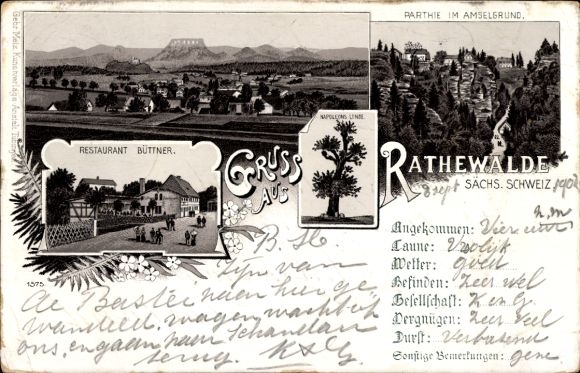 PARTHIE IM AMSELGRUND.
NAPOLEONS LINDE.
RESTAURANT BÜTTNER.
GRUSS
AUS
RATHEWALDE
SÄCHS. SCHWEIZ
8 sept 1902
Angekommen: Vier uur n.m
Laune: Vrolijk
Wetter: goed
Befinden: Zeer wel
Gesellschaft: K. en G.
Vergnügen: Zeer veel
Durst: Verbasend
Sonstige Bemerkungen: gene
B. H
Zijn van
de Bastei naar hier ge
wandeld. wagen wacht
ons, en gaan naar Schandau
terug. K & G
1575